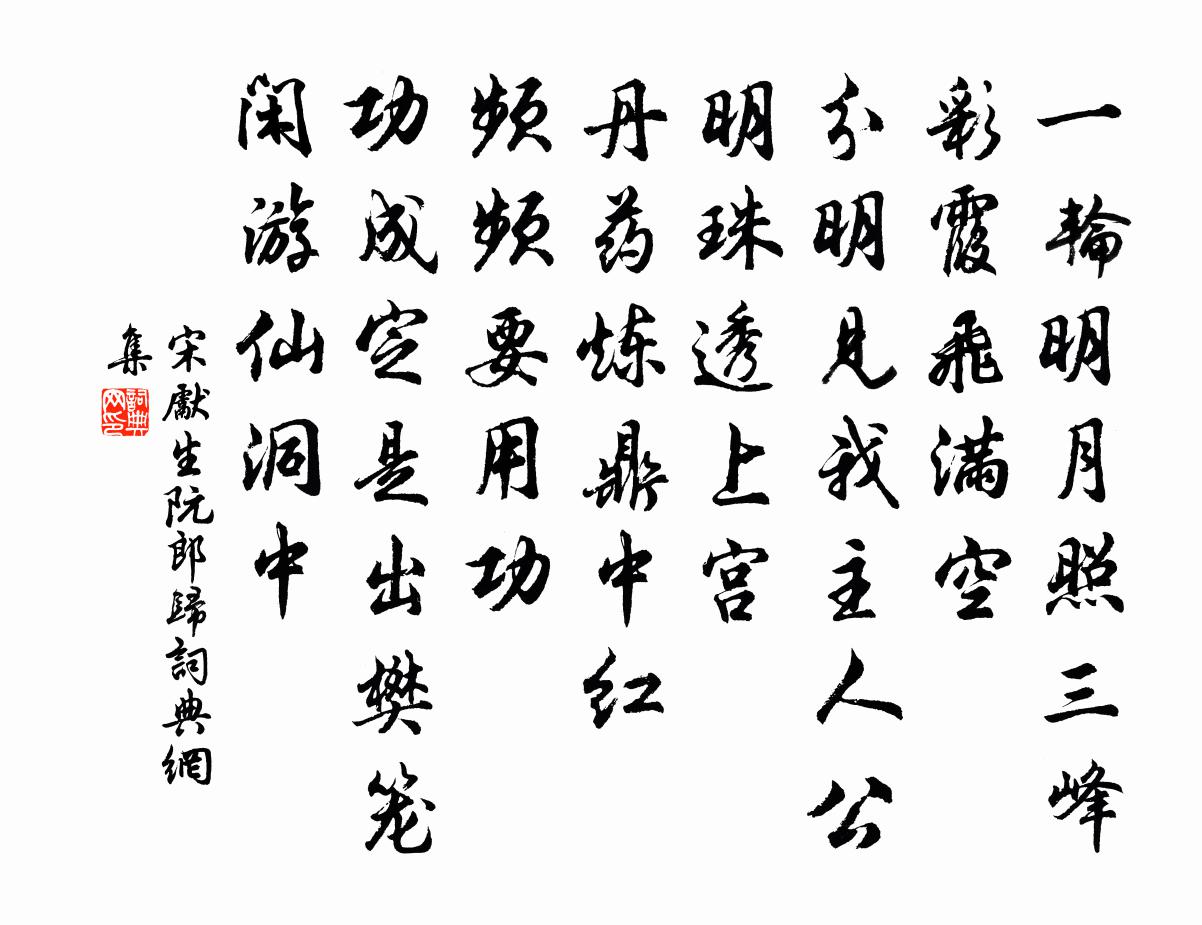 一輪明月照三峰
彩霞飛满空
分明見我主人公
明珠透上宫
丹药炼鼎中红
頻頻要用功
功成定是出樊笼
闲游仙洞中
宋獻生阮郎歸詞典網
集
詞典网印